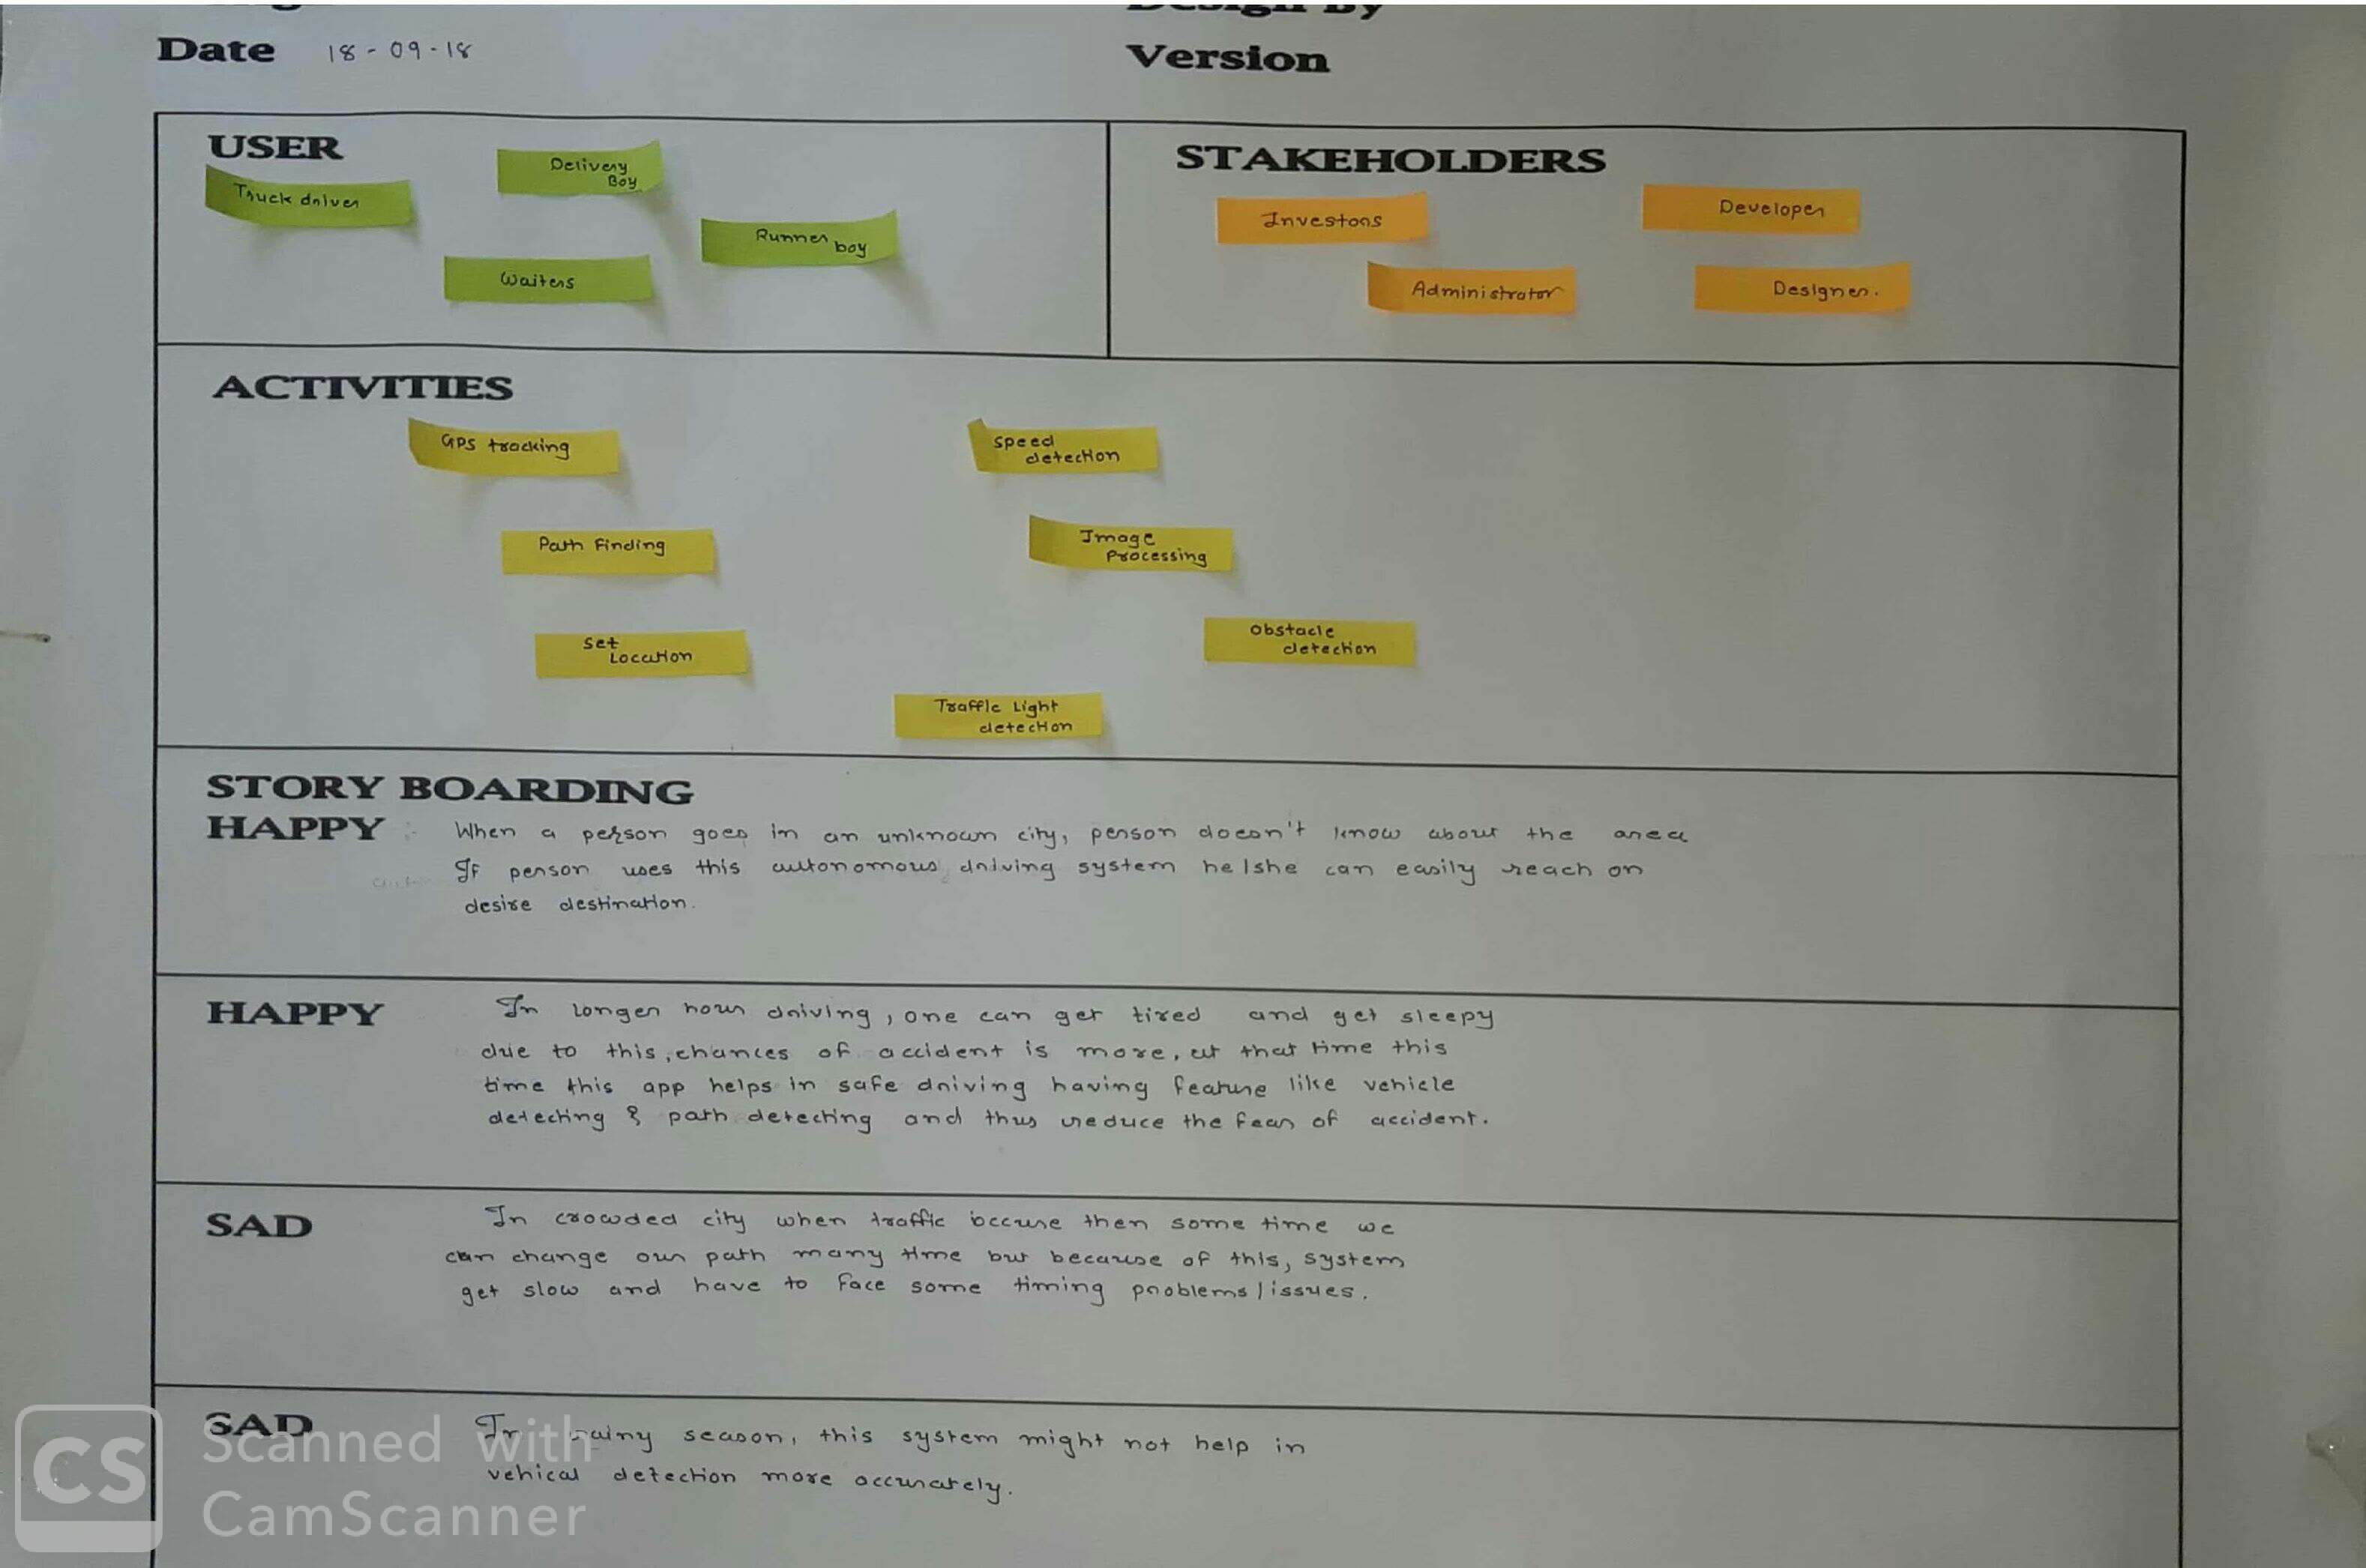 Design By
Date 18-09-18
Version
USER
Truck driver
Delivery
Boy
Runner boy
Waiters
STAKEHOLDERS
Investors
Developer
Administrator
Designer.
ACTIVITIES
GPS tracking
Speed
detection
Path Finding
Image
Processing
Set
Location
Obstacle
detection
Traffic Light
detection
STORY BOARDING
HAPPY : When a person goes in an unknown city, person doesn't know about the area
If person uses this autonomous driving system he/she can easily reach on
desire destination.
HAPPY In longer hour driving, one can get tired and get sleepy
due to this, chances of accident is more, at that time this
time this app helps in safe driving having feature like vehicle
detecting & path detecting and thus reduce the fear of accident.
SAD In crowded city when traffic occure then some time we
can change our path many time but because of this, system
get slow and have to face some timing problems/issues.
SAD In rainy season, this system might not help in
vehical detection more accurately.
CS Scanned with
CamScanner